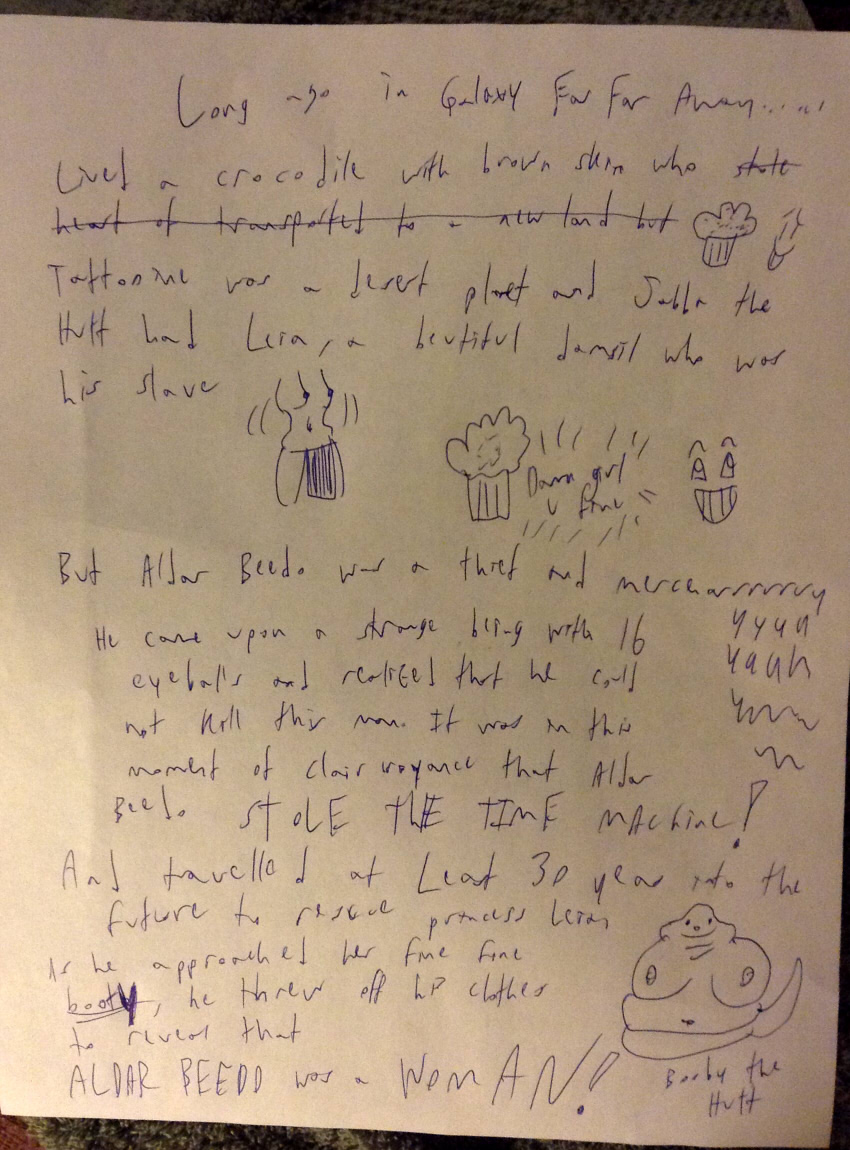 Long ago in Galaxy Far Far Away......
Lived a crocodile with brown skin who stole
heart of transported to a new land but
Tattonine was a desert planet and Jabba the
Hutt had Leia, a beutiful damsil who was
his slave
Damn girl
u fine
But Aldar Beedo was a thief and mercenarrrrrry
He came upon a strange being with 16
eyeballs and realized that he could
not kill this man. It was in this
moment of clairvoyance that Aldar
Beedo STOLE THE TIME MACHINE!
And travelled at Least 30 year into the
future to rescue princess Leia,
As he approached her fine fine
booty, he threw off his clothes
to reveal that
ALDAR BEEDO was a WOMAN!
Booby the
Hutt